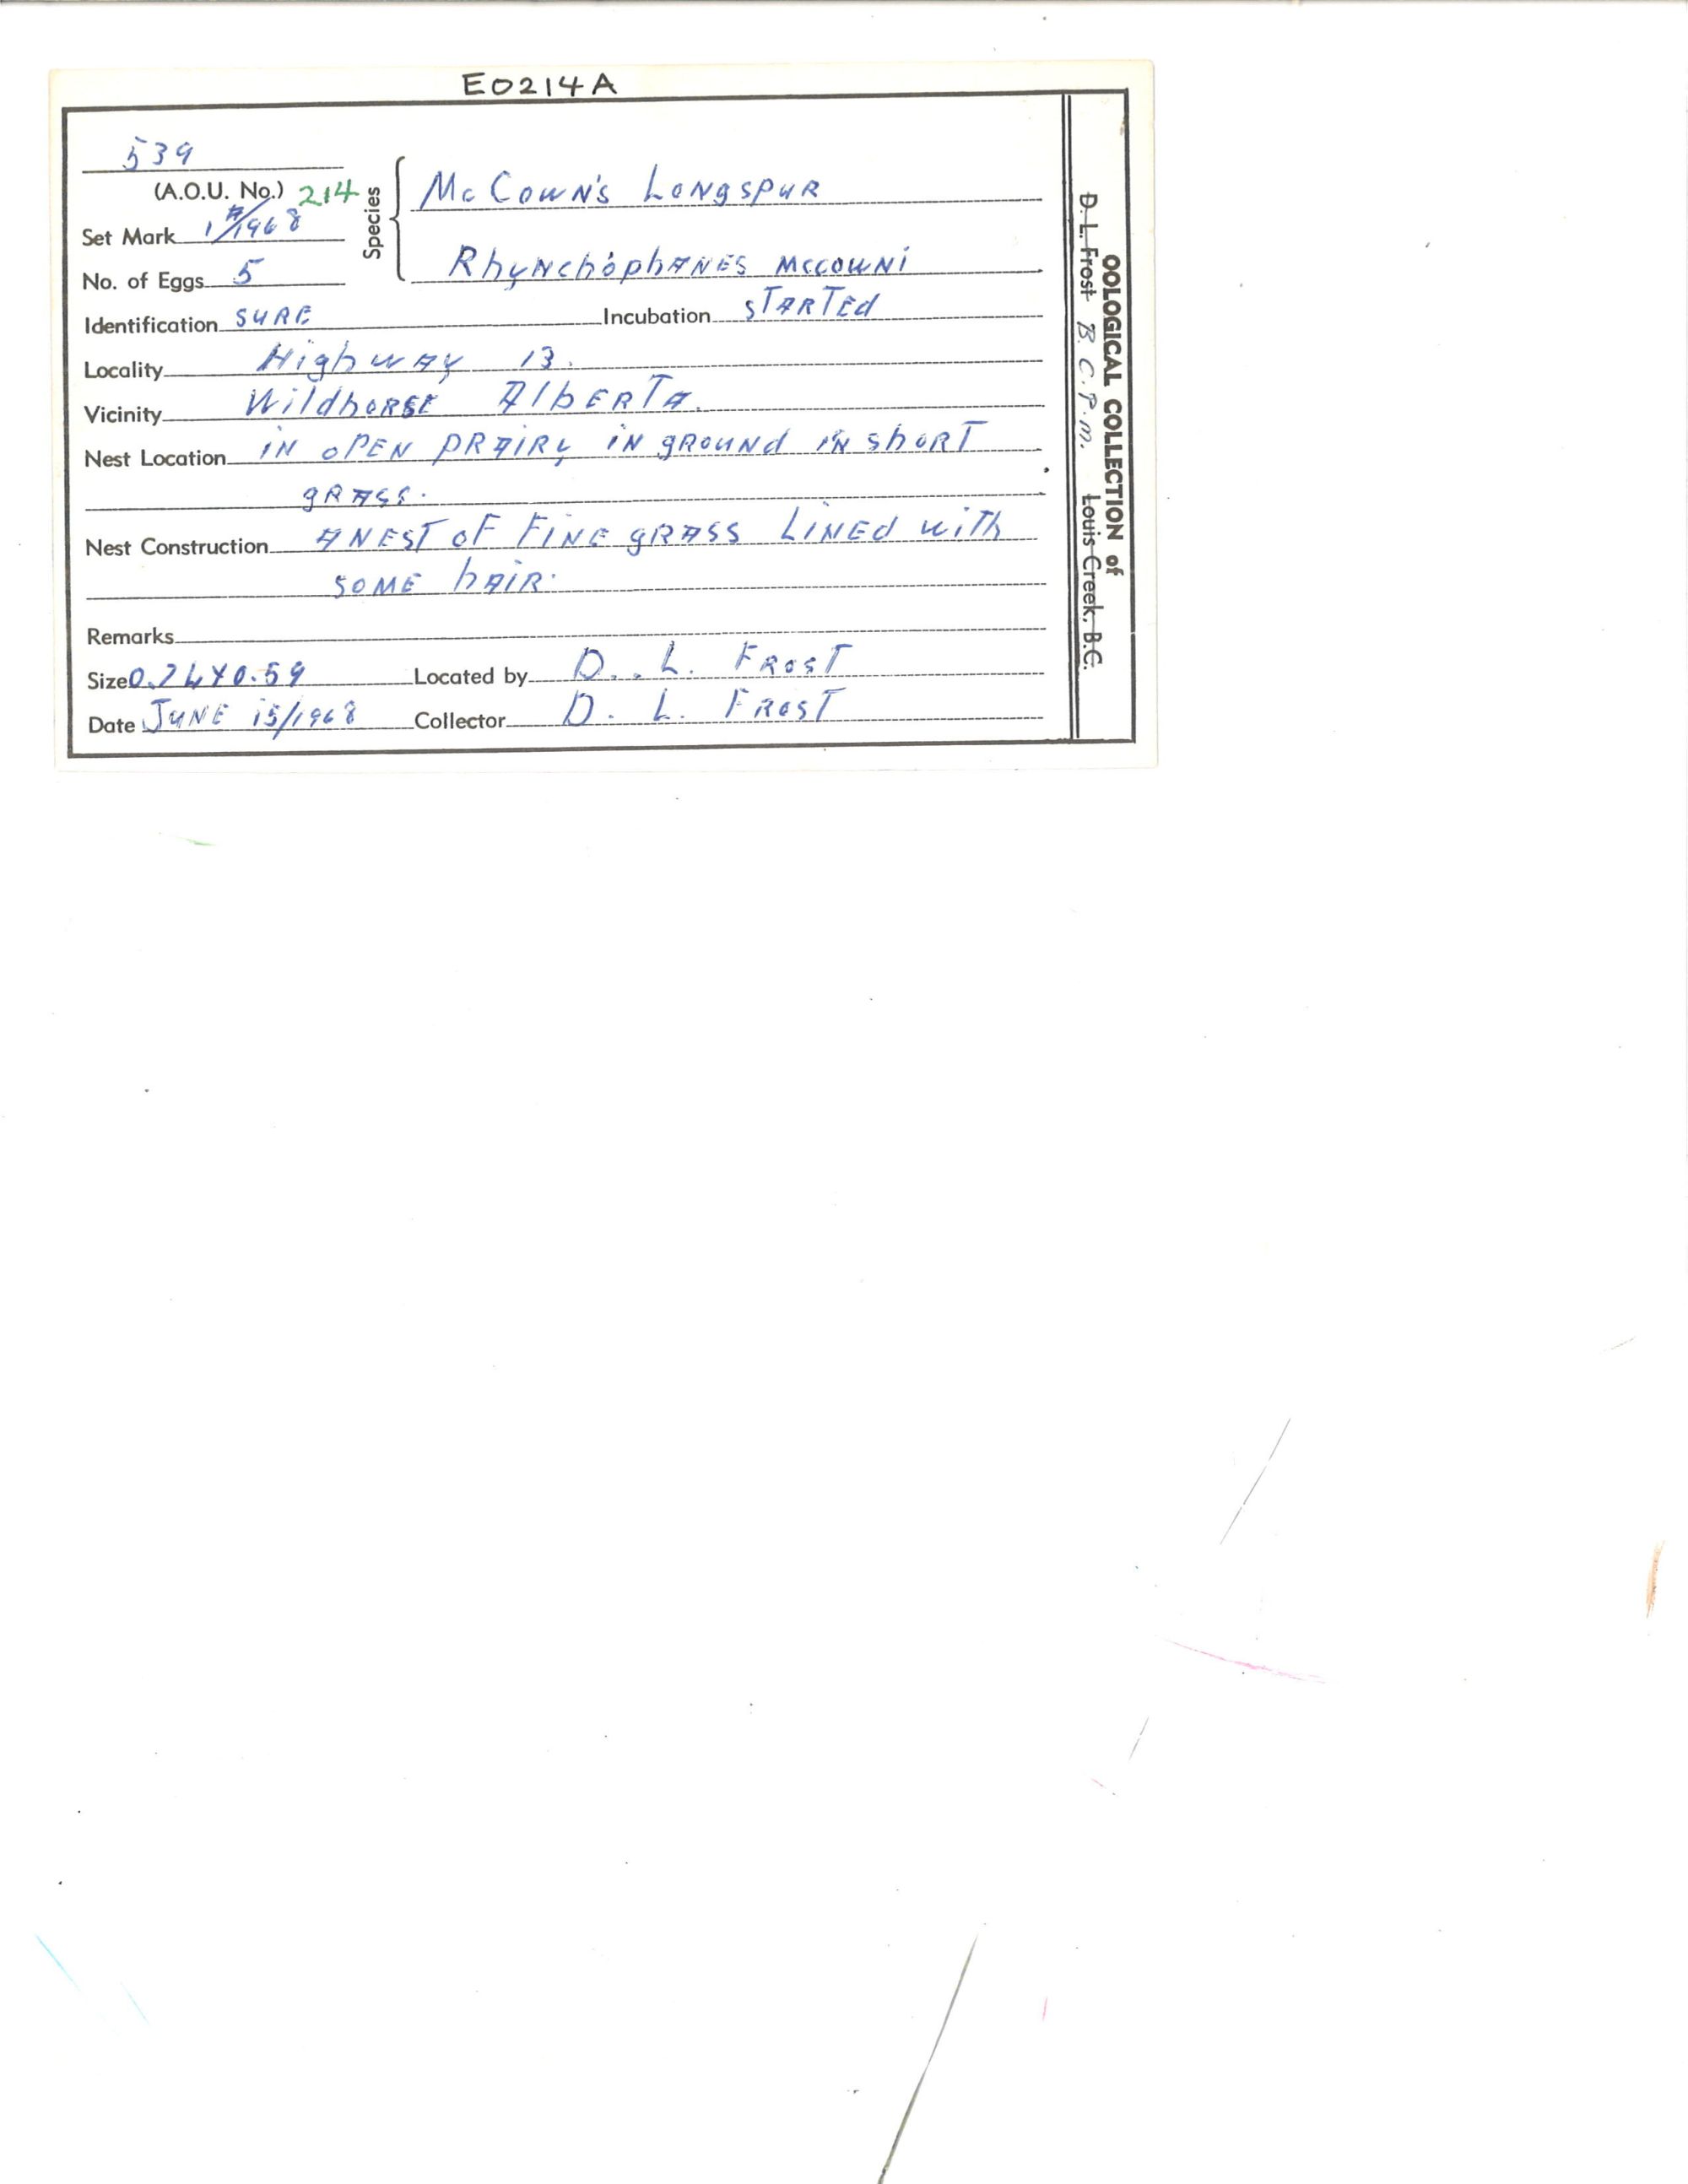 E0214A
539
(A.O.U. No.) 214
Set Mark 1A/1968
No. of Eggs 5
Species
McCown's Longspur
Rhynchophanes mccowni
Identification SURE Incubation STARTEd
Locality Highway 13.
Vicinity Wildhorse Alberta.
Nest Location IN OPEN PRAIRY IN gROUNd IN ShORT
gRASS.
Nest Construction A NEST OF FINE gRASS LINEd with
SOME hAIR.
Remarks
Size 0.74X0.59 Located by D. L. FROST
Date JUNE 15/1968 Collector D. L. FROST
OOLOGICAL COLLECTION of
D. L. Frost B.C.P.M. Louis Creek, B.C.